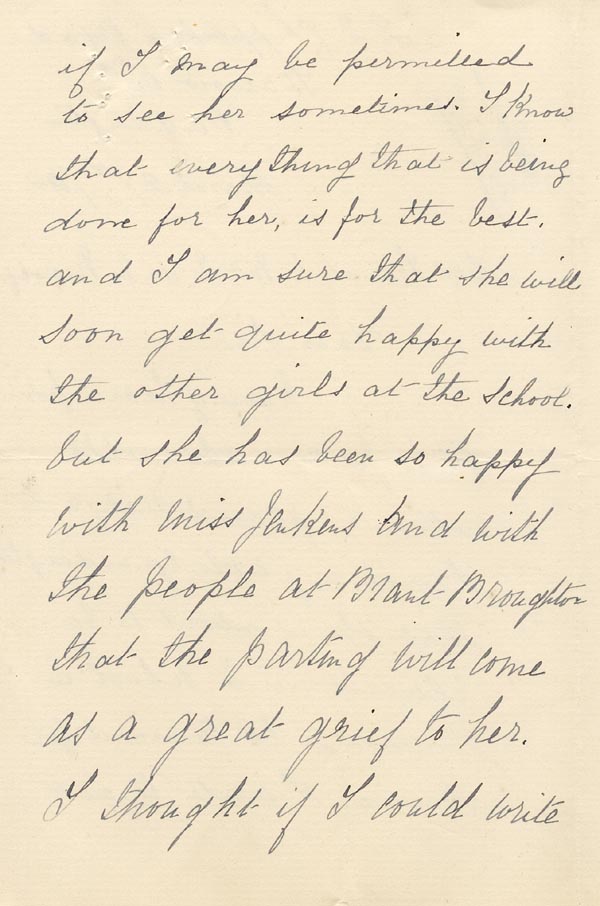 if I may be permitted
to see her sometimes. I know
that everything that is being
done for her, is for the best.
and I am sure that she will
soon get quite happy with
the other girls at the school.
but she has been so happy
with Miss Jenkens and with
the people at Brant Broughton
that the parting will come
as a great grief to her.
I thought if I could write